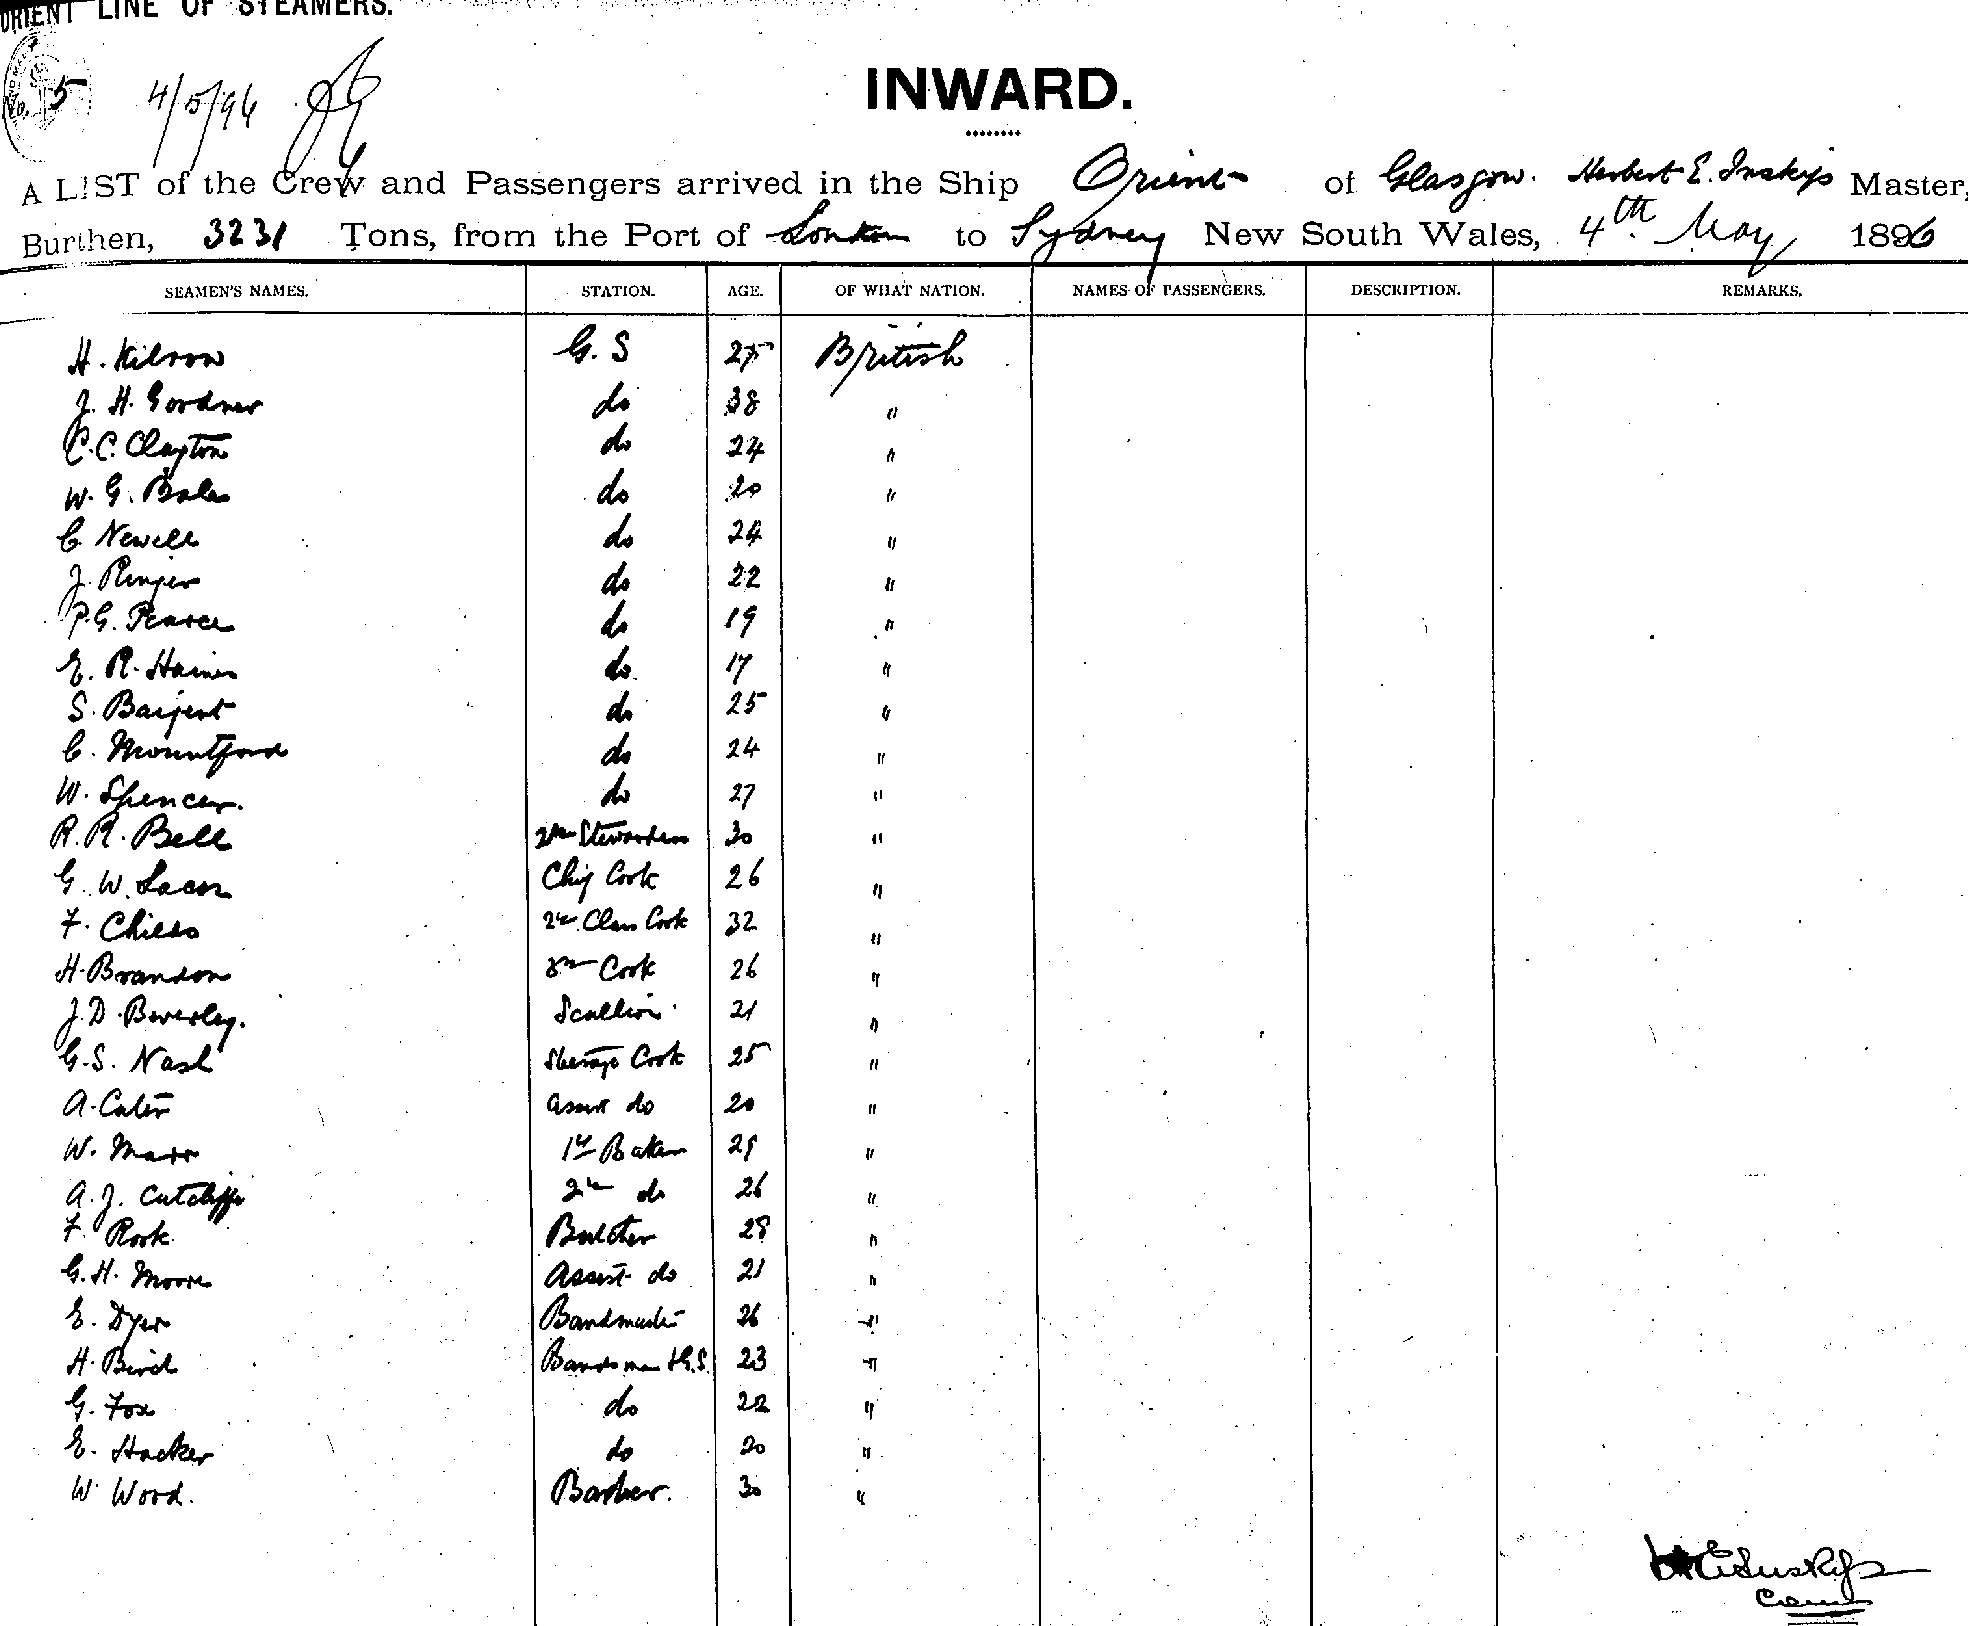 ORIENT LINE OF STEAMERS.
No. 5 4/5/96
INWARD.
A LIST of the Crew and Passengers arrived in the Ship Orient of Glasgow. Herbert E. Inskip Master,
Burthen, 3231 Tons, from the Port of London to Sydney New South Wales, 4th May 1896
SEAMEN'S NAMES. STATION. AGE. OF WHAT NATION. NAMES OF PASSENGERS. DESCRIPTION. REMARKS.
H. G. S 25 British
J. H. Gordner do 38 "
C. C. Clayton do 24 "
W. G. Bales do 20 "
C Newell do 24 "
J. Ringer do 22 "
P. G. Pearce do 19 "
E. R. Haines do 17 "
S. Baigent do 25 "
C. Mountford do 24 "
W. Spencer. do 27 "
R. R. Bell 2nd Stewardess 30 "
G. W. Lacon Chief Cook 26 "
F. Childs 2nd Class Cook 32 "
H. Brandon Cook 26 "
J. D. Beverley. Scullion 21 "
G. S. Nash Steerage Cook 25 "
A. Cater Assist do 20 "
W. Marr 1st Baker 29 "
A. J. Cutcliffe 2nd do 26 "
F. Rook Butcher 28 "
G. H. Moore Assist do 21 "
E. Dyer Bandmaster 26 "
H. Bird Bandsman & G.S. 23 "
G. Fox do 22 "
E. Hacker do 20 "
W Wood. Barber. 30 "
H E Inskip